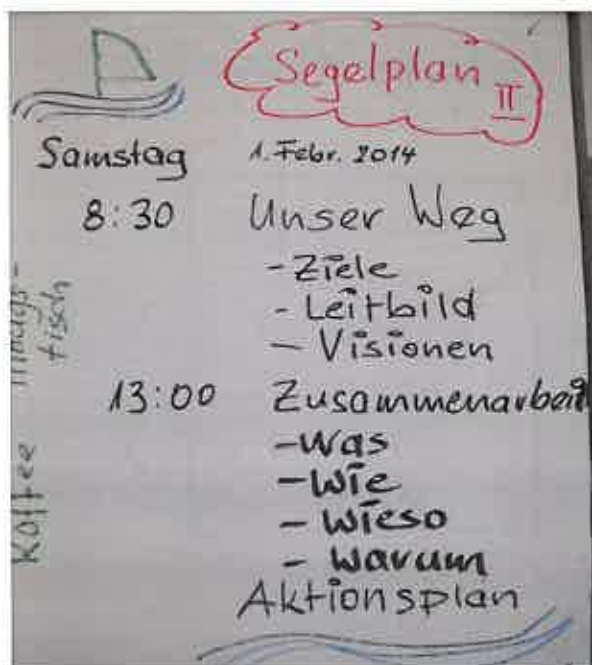 Segelplan II
Samstag 1. Febr. 2014
8:30 Unser Weg
- Ziele
- Leitbild
- Visionen
13:00 Zusammenarbeit
- Was
- Wie
- Wieso
- Warum
Aktionsplan
tisch
Kaffee